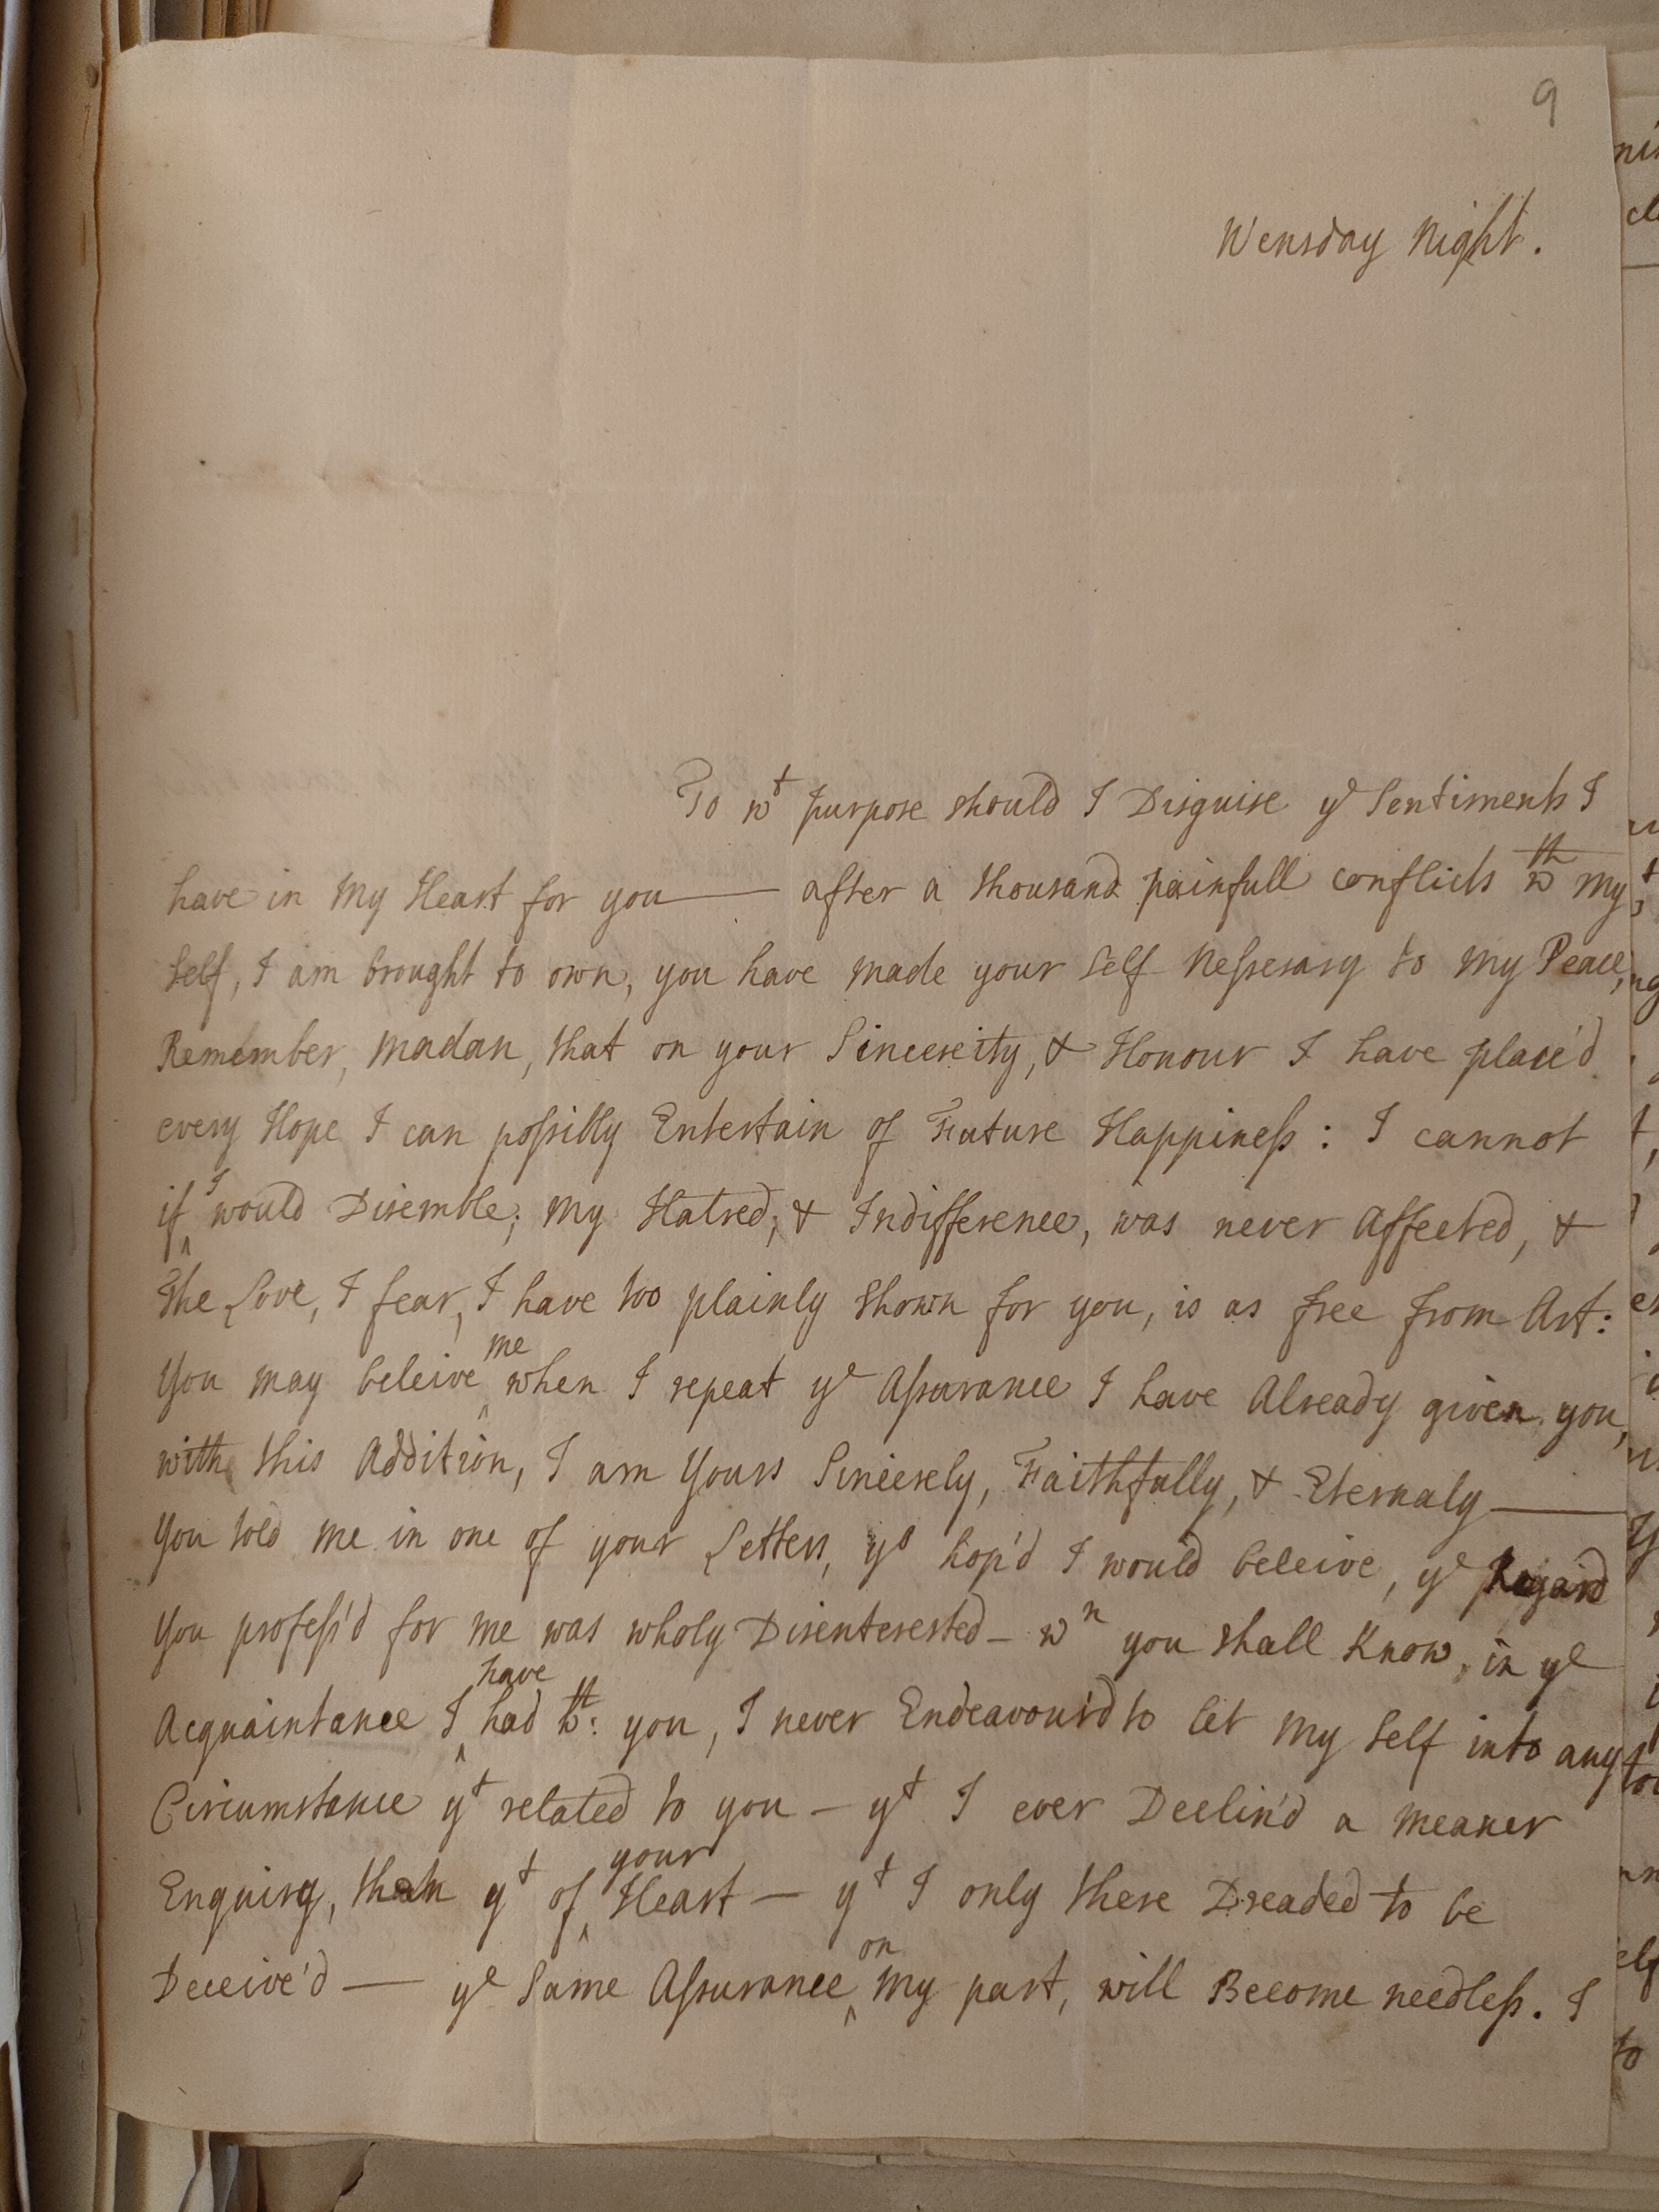 9
Wensday Night.
To wt purpose should I Disguise ye Sentiments I
have in My Heart for you —— after a thousand painfull conflicts wth my
self, I am brought to own, you have made your self Nessesary to My Peace,
Remember, Madan, that on your Sincereity, & Honour I have place'd
every Hope I can possibly Entertain of Future Happiness: I cannot
if I would Disemble; My Hatred, & Indifference, was never Affected, &
The Love, I fear, I have too plainly Shown for you, is as free from Art:
You may beleive me when I repeat ye Assurance I have Already given you,
with this Addition, I am Yours Sincerely, Faithfully, & Eternaly ——
You told me in one of your Letters, yo hop'd I would beleive, ye Regard
You profess'd for me was wholy Disenterested — wn you shall Know, in ye
Acquaintance I have had wth: you, I never Endeavour'd to let My Self into any
Circumstance yt related to you — yt I ever Declin'd a meaner
Enquiry, than yt of your Heart — yt I only there Dreaded to be
Deceive'd —— ye Same Assurance on My part, will Become needless. I